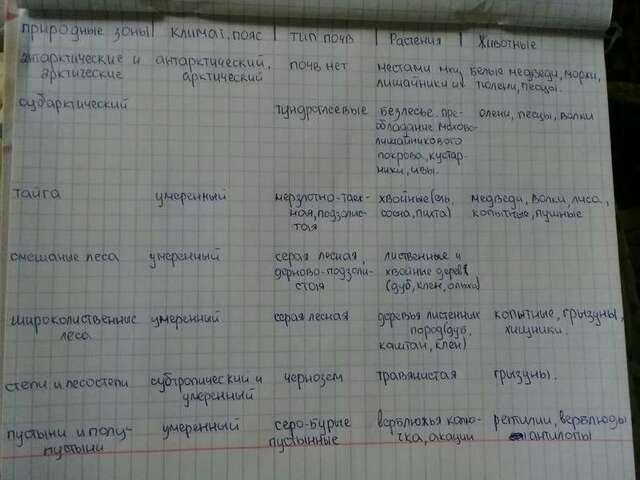 природные зоны | климат. пояс | тип почв | Растения | Животные
антарктические и антарктический, почв нет местами мхи, белые медведи, моржи,
арктические арктический лишайники их тюлени, песцы.
субарктический тундроглеевые безлесье. пре- олени, песцы, волки
обладание мохово-
лишайникового
покрова, кустар-
ники, ивы.
тайга умеренный мерзлотно-таеж- хвойные (ель, медведи, волки, лиса,
ная, подзолис- сосна, пихта) копытные, пушные
тая
смешаные леса умеренный серая лесная, лиственные и
дерново-подзоли- хвойные дерев
стая (дуб, клен, ольха)
широколиственные умеренный серая лесная деревья лиственных копытные, грызуны,
леса пород (дуб, хищники.
каштан, клен)
степи и лесостепи субтропический и чернозем травянистая грызуны.
умеренный
пустыни и полу- умеренный серо-бурые верблюжья колю- рептилии, верблюды
пустыни пустынные чка, акации антилопы